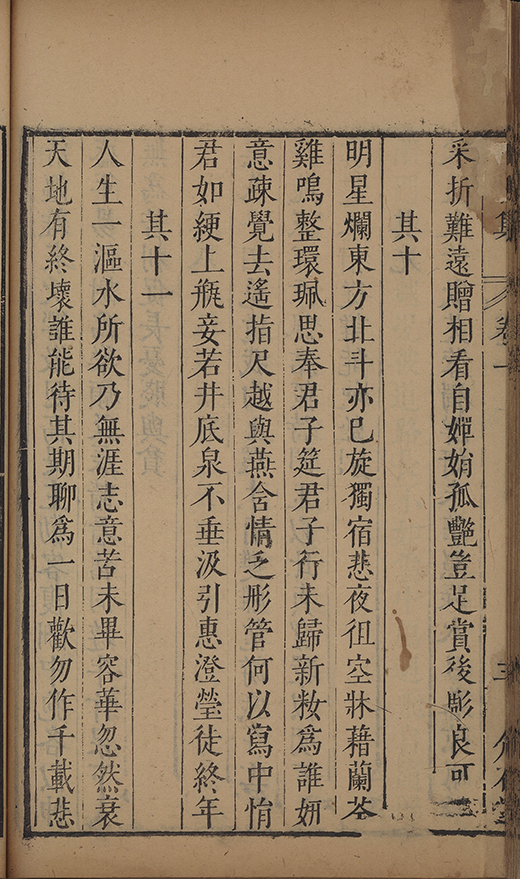 采折難遠贈相看自嬋娟孤艷豈足賞後彫良可
其十
明星爛東方北斗亦已旋獨宿悲夜徂空牀藉蘭荃
雞鳴整環珮思奉君子筵君子行未歸新妝爲誰妍
意疎覺去遙指尺越與燕含情乏彤管何以寫中悁
君如綆上瓶妾若井底泉不垂汲引惠澄瑩徒終年
其十一
人生一漚水所欲乃無涯志意苦未畢容華忽然衰
天地有終壞誰能待其期聊爲一日歡勿作千載悲